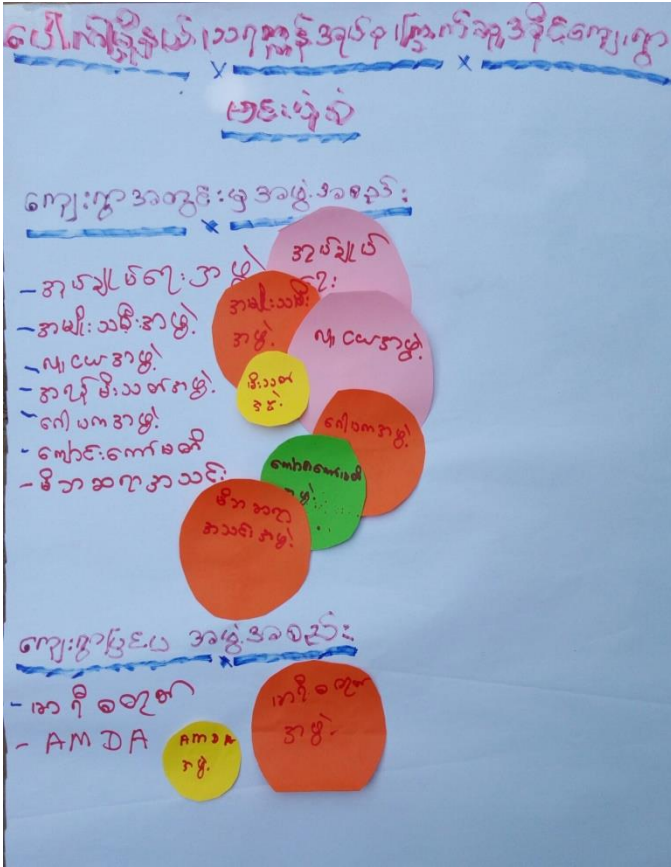 ပေါက်မြို့နယ်၊ သရက္ကန်အုပ်စု၊ ကြွက်ဆူးခိုင်ကျေးရွာ
ကျေးရွာအတွင်းမှ အဖွဲ့အစည်း
- အုပ်ချုပ်ရေးအဖွဲ့
- အမျိုးသမီးအဖွဲ့
- လူငယ်အဖွဲ့
- အရန်မီးသတ်အဖွဲ့
- ဂေါပကအဖွဲ့
- ကျောင်းကော်မတီ
- မိဘဆရာအသင်း
အုပ်ချုပ်
ရေး
အမျိုးသမီး
အဖွဲ့
လူငယ်အဖွဲ့
မီးသတ်
အဖွဲ့
ဂေါပကအဖွဲ့
ကျောင်းကော်မတီ
အဖွဲ့
မိဘဆရာ
အသင်းအဖွဲ့
ကျေးရွာပြင်ပ အဖွဲ့အစည်း
- AMDA
AMDA
အဖွဲ့
အဖွဲ့